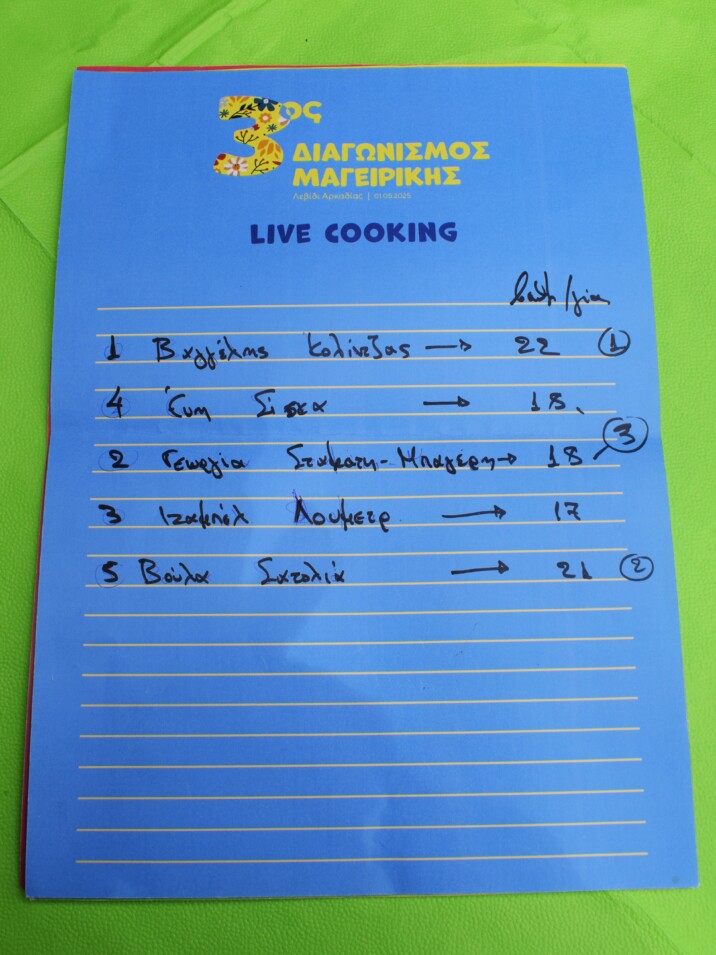 3ος
ΔΙΑΓΩΝΙΣΜΟΣ
ΜΑΓΕΙΡΙΚΗΣ
Λεβίδι Αρκαδίας | 01.05.2025
LIVE COOKING
1 Βαγγέλης Κολίντζας → 22 1
4 Εύη → 18
2 Γεωργία Σταματη-Μπαγέρη → 18 3
3 Ιζαμπέλ Λουμετρ → 17
5 Βούλα Σατολιά → 21 2